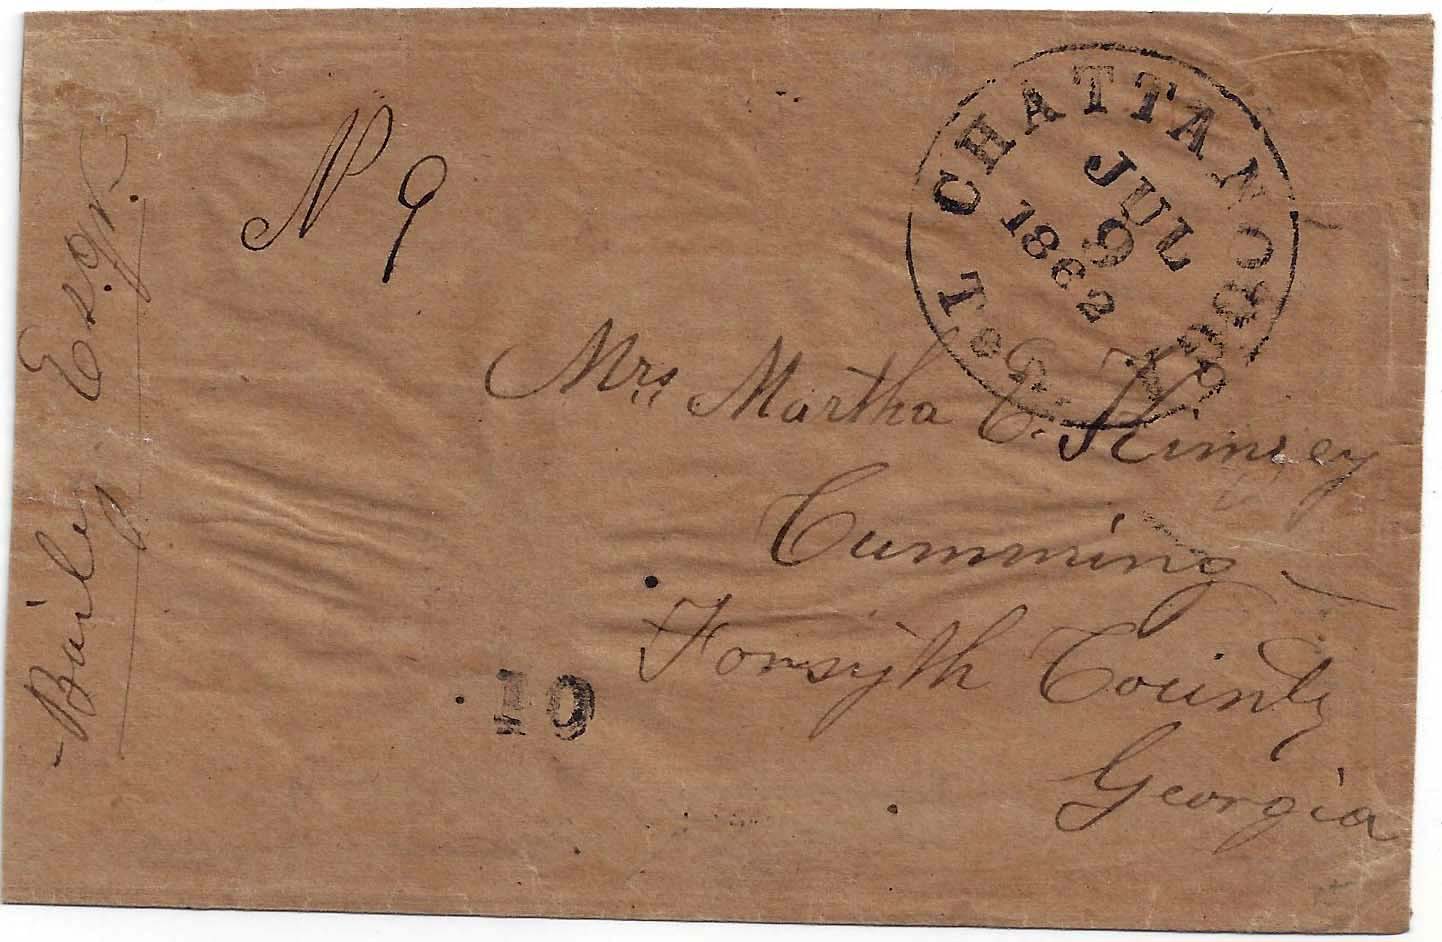 CHATTANOOGA Ten.
JUL
9
1862
N 9
Mrs Martha C. Kimsey
Cumming
Forsyth County
Georgia
10
Baily Esqr.